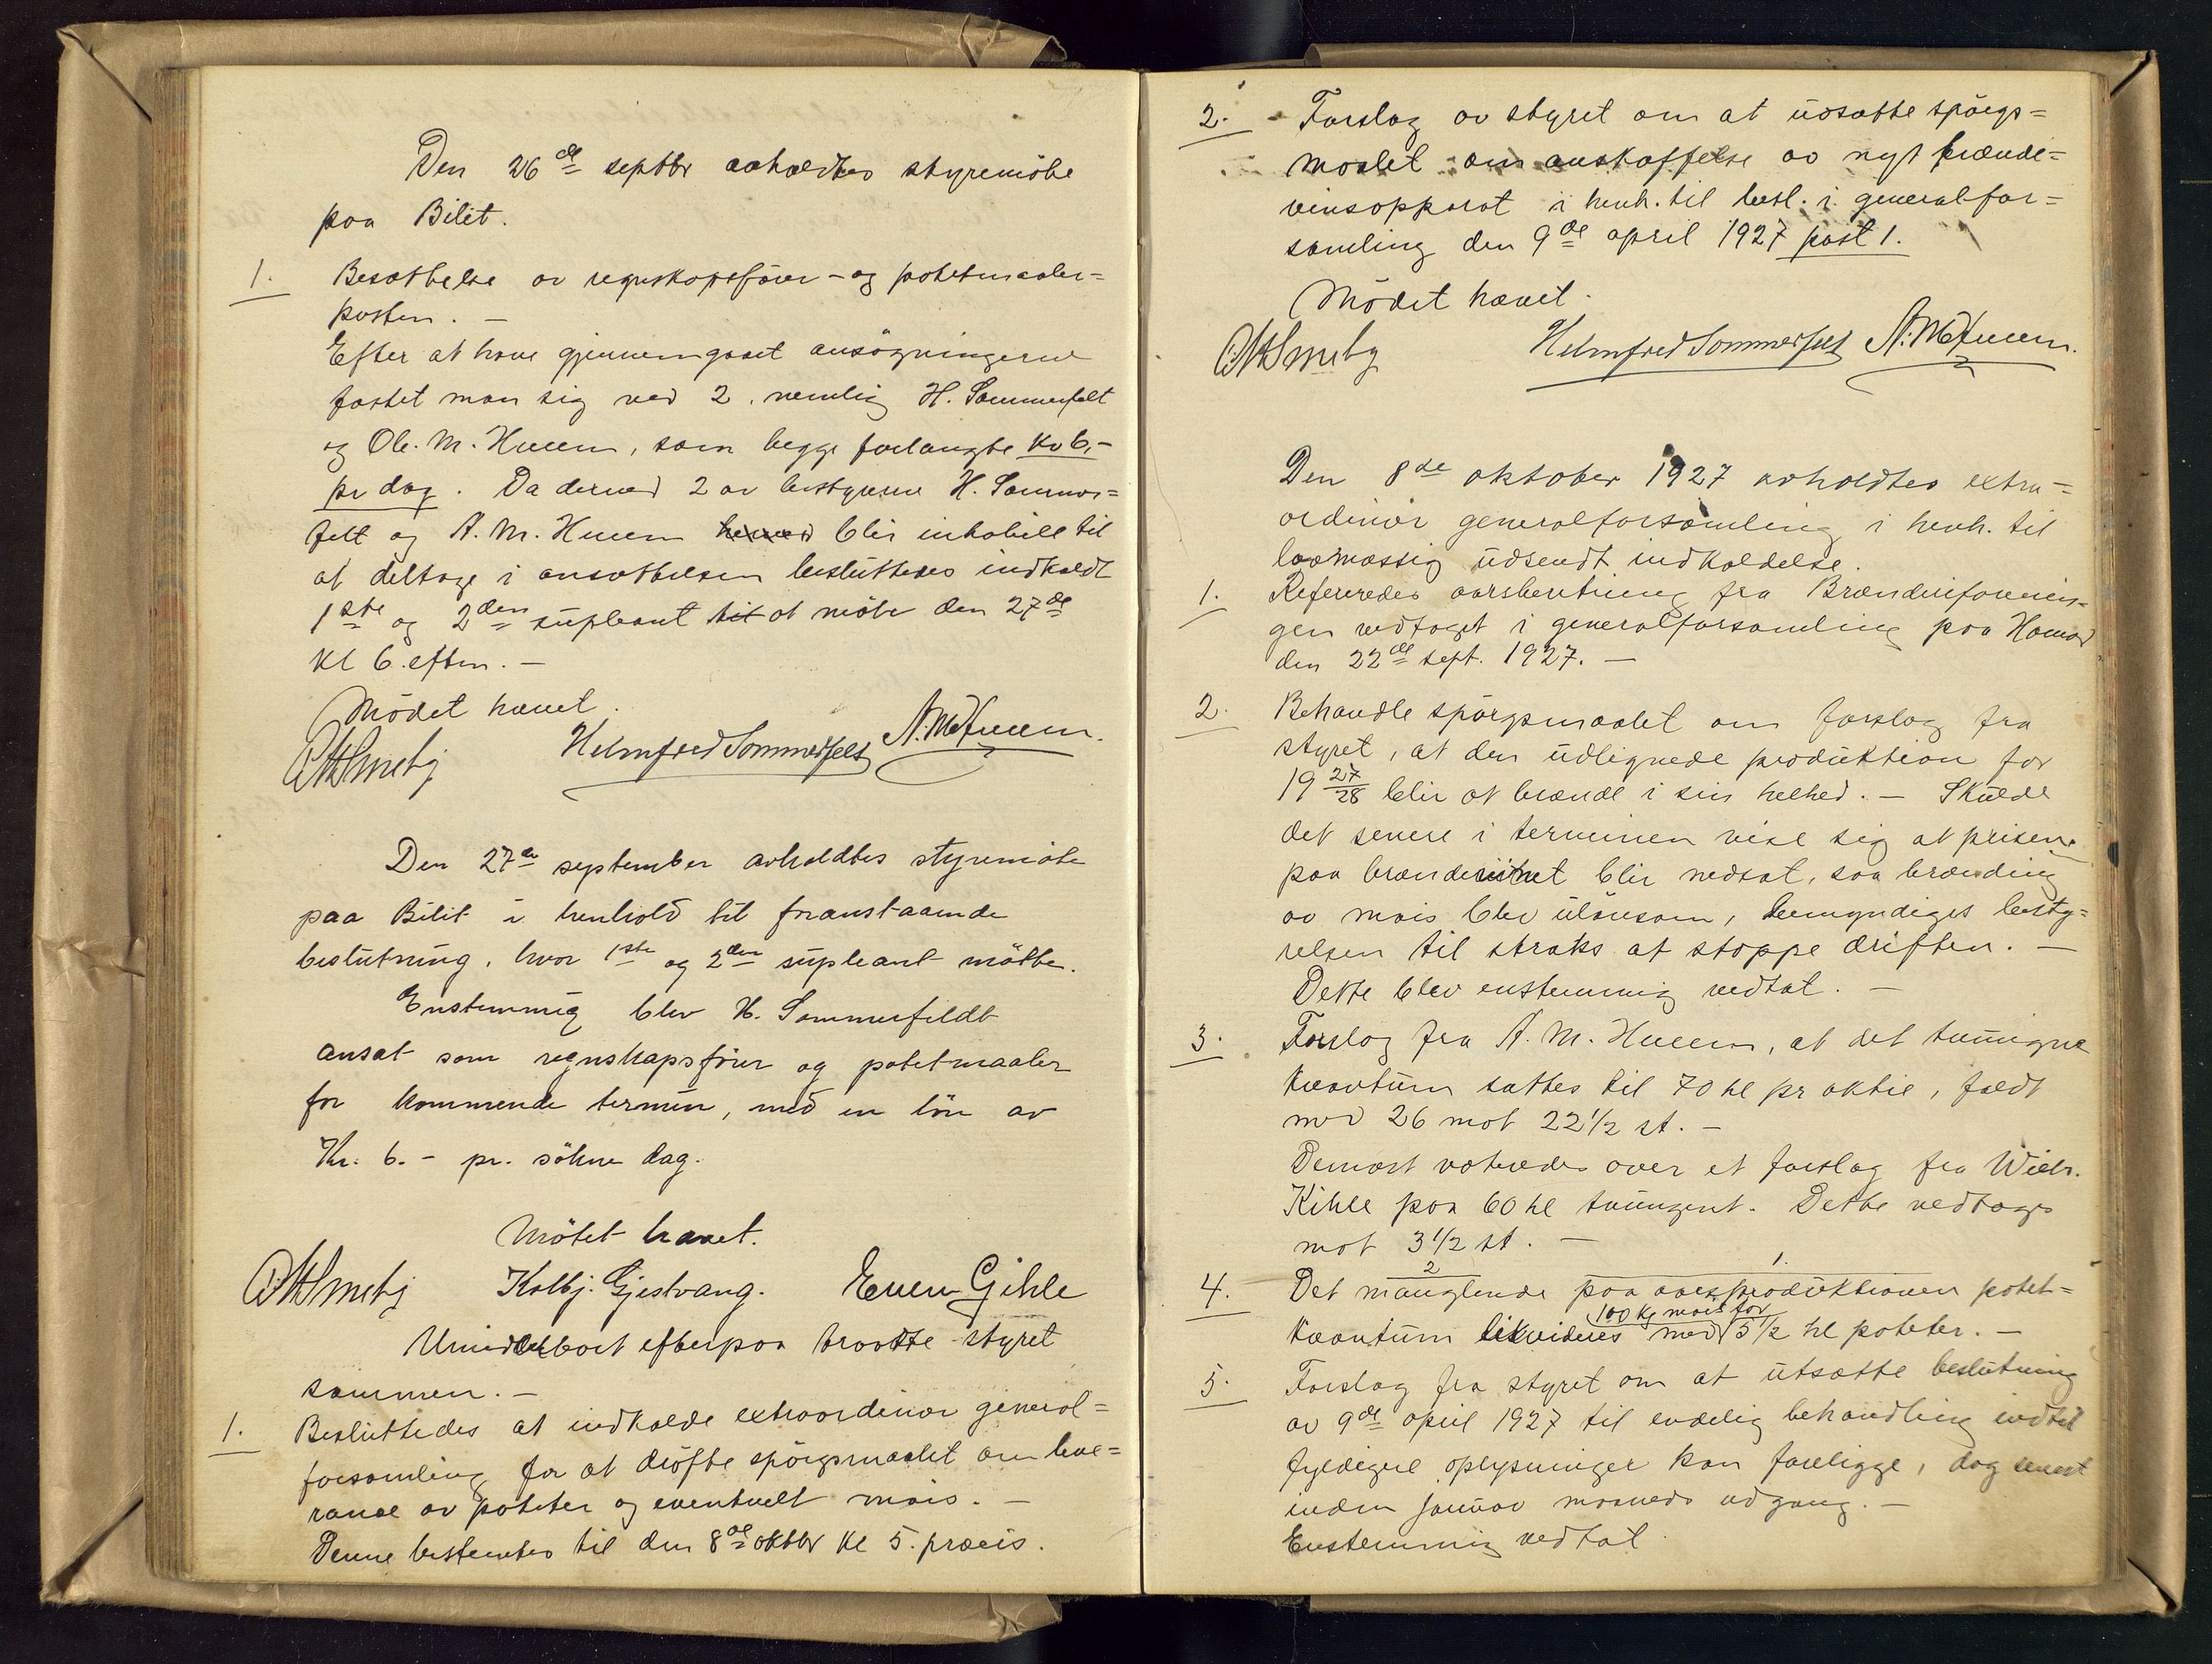 Den 26de septbr avholdtes styremöte
paa Bilit.
1. Besættelse av regnskapsförer- og potetmaaler=
posten. –
Efter at have gjennemgaaet ansögningerne
fæstet man sig ved 2, nemlig H. Sommerfelt
og Ole. M. Hueem, som begge forlangte Kr 6,-
pr dag. Da derved 2 av bestyrerne H. Sommer=
felt og A. M. Hueem blir inhabile til
at deltage i ansættelsen besluttedes indkaldt
1ste og 2den supleant til at möte den 27de
kl 6. eftm. –
Mödet hævet.
Helmfred Sommerfelt A. M. Hueem.
Den 27de september avholdtes styremöte
paa Bilit i henhold til foranstaaende
beslutning, hvor 1ste og 2den supleant mötte.
Enstemmig blev H. Sommerfeldt
ansat som regnskapsförer og potetmaaler
for kommende termin, med en lön av
Kr. 6.- pr. sökne dag.
Mötet hævet.
Kolbj. Gjestvang. Even Gihle
Umiddelbart efterpaa traatte styret
sammen. –
1. Besluttedes at indkalde extraordinær general=
forsamling for at dröfte spörgsmaalet om leve=
ranse av poteter og eventuelt mais. –
Denne bestemtes til den 8de oktbr kl 5. præcis.
2. Forslag av styret om at udsætte spörgs=
maalet om anskaffelse av nyt brænde=
vinsapparat i henh. til besl. i generalfor=
samling den 9de april 1927 post 1.
Mödet hævet.
Helmfred Sommerfelt A. M. Hueem.
Den 8de oktober 1927 avholdtes extra=
ordinær generalforsamling i henh. til
lovmæssig udsendt indkaldelse.
1. Refereredes aarsberetning fra Brænderiforenin=
gen vedtaget i generalforsamling paa Hamar
den 22de sept. 1927. –
2. Behandle spörgsmaalet om forslag fra
styret, at den udlignede produktion for
19 27/28 blir at brænde i sin helhed. – Skulde
det senere i terminen vise sig at prisen
paa brænderiitnet blir nedsat, saa brænding
av mais blev ulönsom, bemyndiges besty=
relsen til straks at stoppe driften. –
Dette blev enstemmig vedtat. –
3. Forslag fra A. M. Hueem, at det tvungne
kvantum sættes til 70 hl pr aktie, faldt
med 26 mot 22 1/2 st. –
Dernæst voteredes over et forslag fra Wilh.
Kihle paa 60 hl tvungent. Dette vedtages
mot 3 1/2 st. –
2 1.
4. Det manglende paa aarsproduktionen potet=
100 kg mais for
kvantum likvideres med 5 1/2 hl poteter. –
5. Forslag fra styret om at utsætte beslutning
av 9de april 1927 til endelig behandling indtil
fyldigere oplysninger kan foreligge, dog senest
inden januar maaneds udgang. –
Enstemmig vedtat.